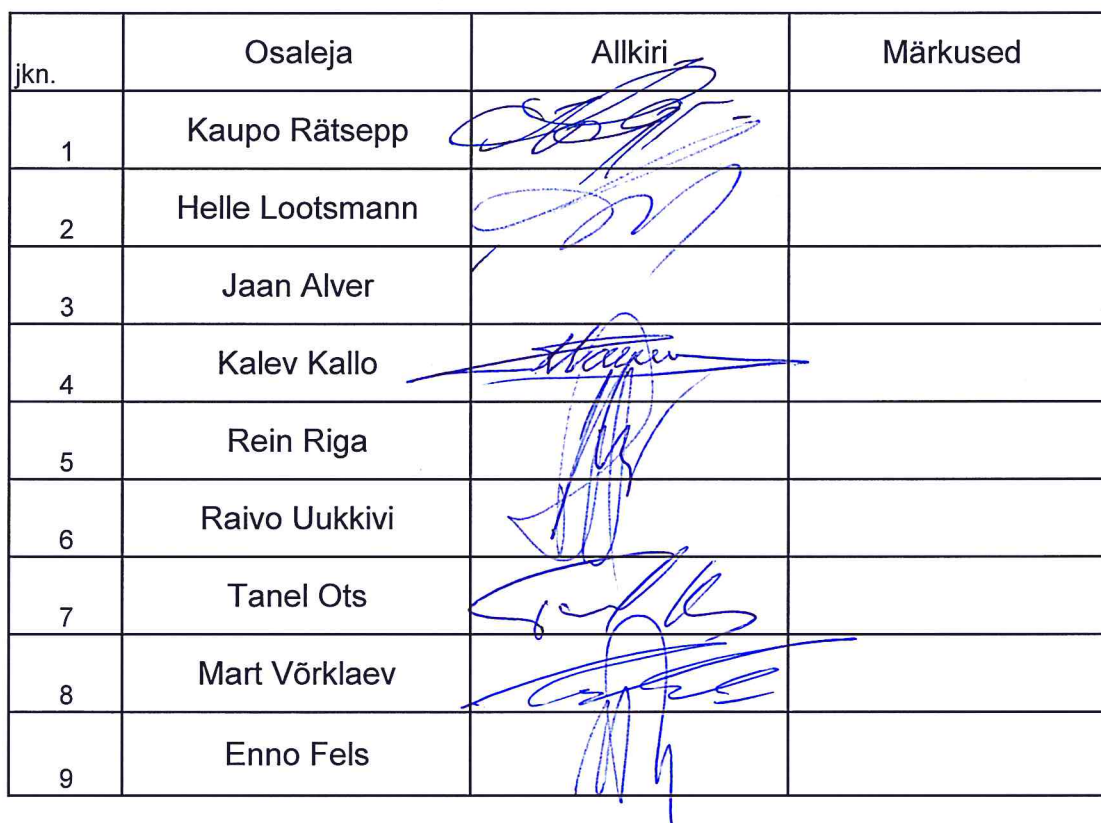 jkn. Osaleja Allkiri Märkused
1 Kaupo Rätsepp
2 Helle Lootsmann
3 Jaan Alver
4 Kalev Kallo
5 Rein Riga
6 Raivo Uukkivi
7 Tanel Ots
8 Mart Võrklaev
9 Enno Fels